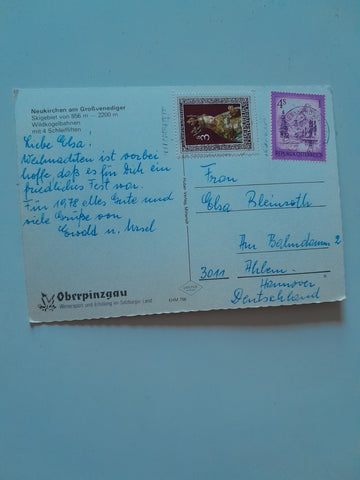 Neukirchen am Großvenediger
Skigebiet von 856 m – 2200 m
Wildkogelbahnen
mit 4 Schleifliften
Liebe Elsa!
Weihnachten ist vorbei
hoffe, daß es für Dich ein
friedliches Fest war.
Für 1978 alles Gute und
viele Grüße von
Ewald u. Ursel
Oberpinzgau
Wintersport und Erholung im Salzburger Land
3
4 S
REPUBLIK ÖSTERREICH
Frau
Elsa Bleinroth
Am Bahndamm 2
3011 Ahlem
Hannover
Deutschland